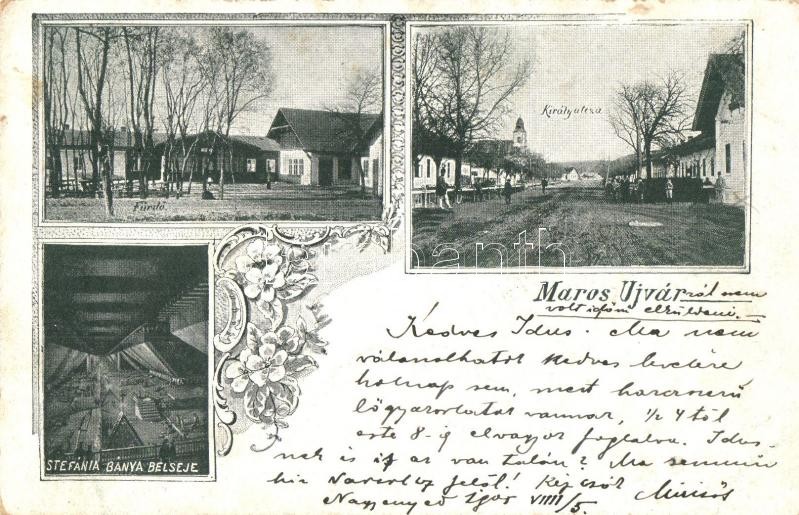 Fürdő.
Királyutcza
STEFÁNIA BÁNYA BELSEJE
Maros Ujvárról nem
volt időm elküldeni.
Kedves Idus. Ma nem
válaszolhatok kedves levelére
holnap sem, mert harczszerű
lőgyakorlatok vannak, 1/2 4 től
este 8-ig elvagyok foglalva. Idus-
nek is az van talán? Ma semmi
hir
Nagyenyed VIII/5.